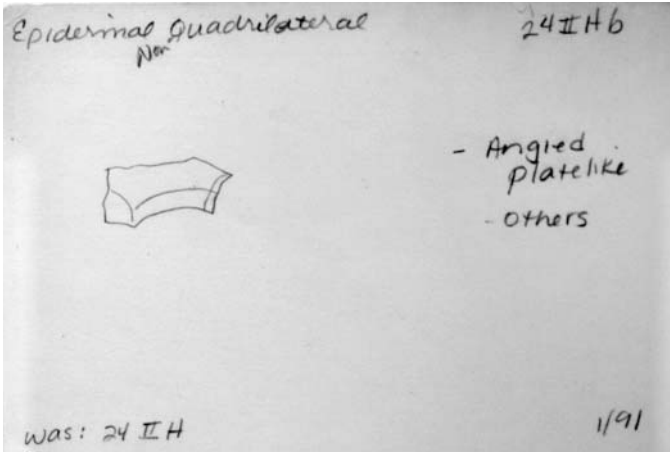 Epidermal Quadrilateral
Non
24 II H b
- Angled
platelike
- Others
was: 24 II H
1/91